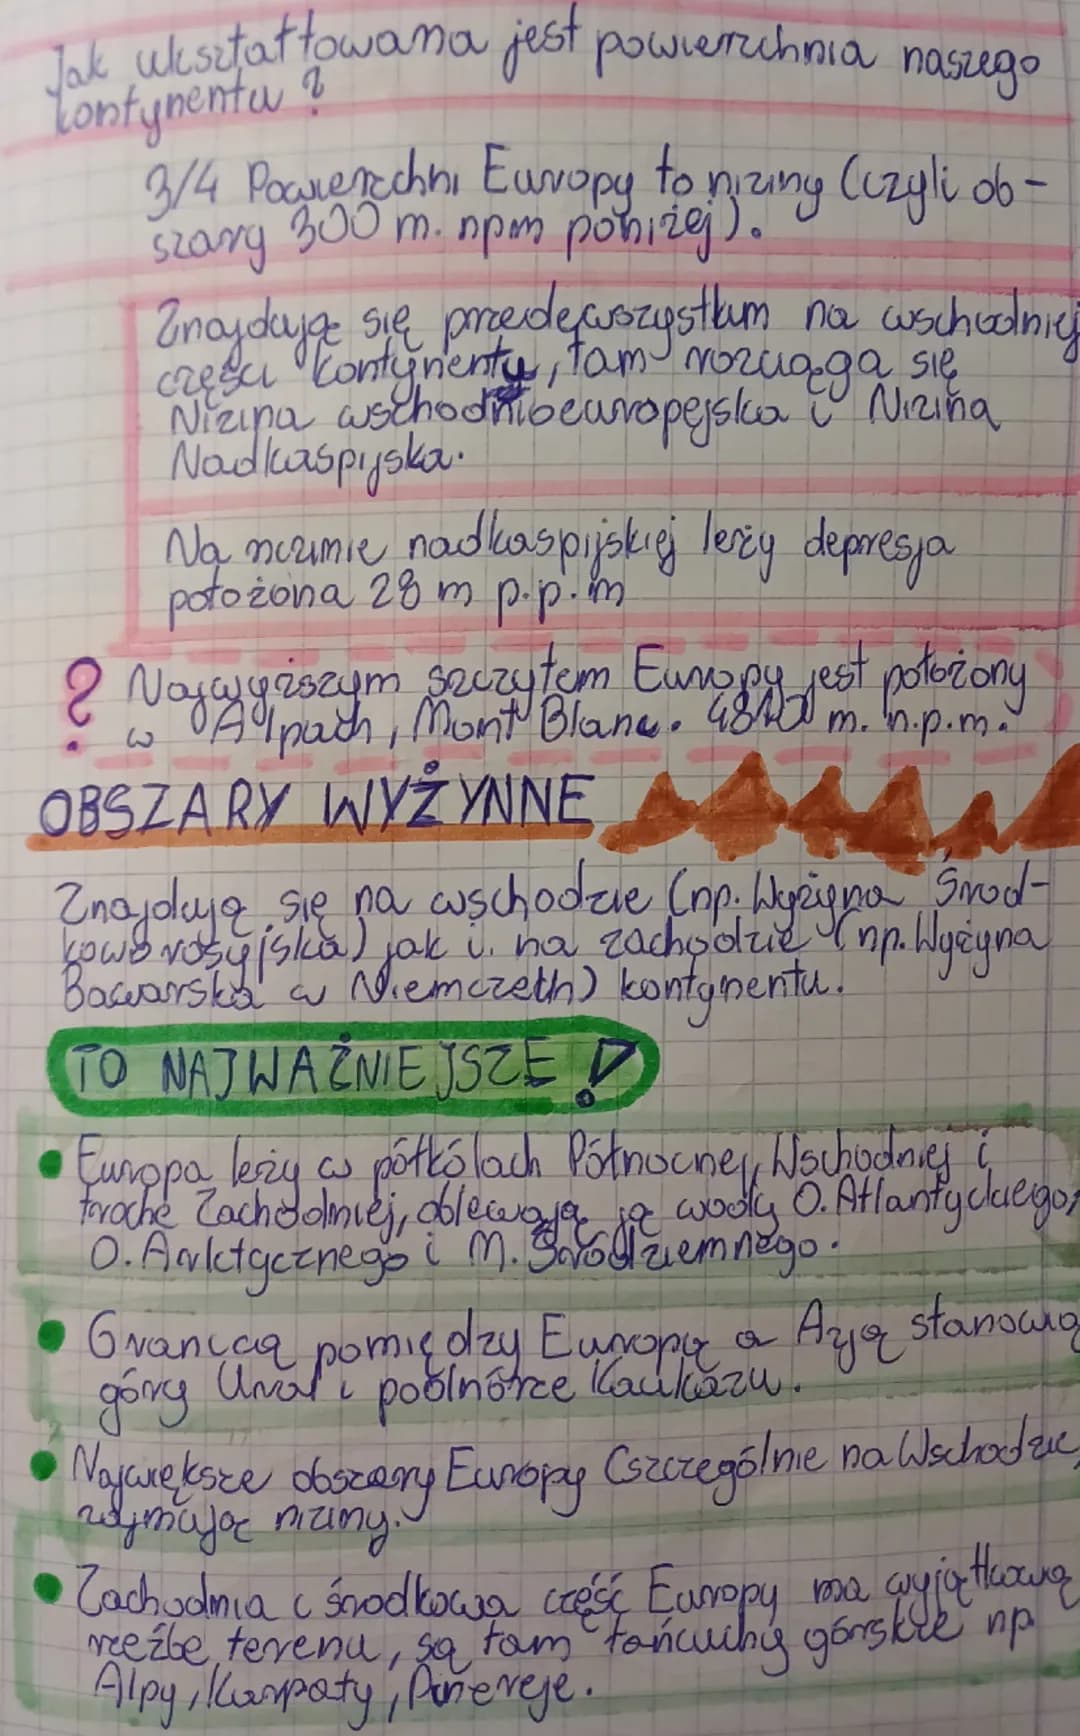 Jak ukształtowana jest powierzchnia naszego
kontynentu ?
3/4 Powierzchni Europy to niziny (czyli ob-
szary 300 m. npm poniżej).
Znajdują się przedewszystkim na wschodniej
części kontynentu, tam rozciąga się
Nizina wschodnioeuropejska i Nizina
Nadkaspijska.
Na nizinie nadkaspijskiej leży depresja
położona 28 m p.p.m
? Najwyższym szczytem Europy jest położony
w Alpach, Mont Blanc. 4810 m. n.p.m.
OBSZARY WYŻYNNE
Znajdują się na wschodzie (np. Wyżyna Środ-
kowo rosyjska) jak i. na zachodzie (np. Wyżyna
Bawarska w Niemczech) kontynentu.
TO NAJWAŻNIEJSZE !
Europa leży w półkólach Północnej, Wschodniej i
trochę Zachodniej, oblewają ją wody O. Atlantyckiego,
O. Arktycznego i M. Śródziemnego.
Granicą pomiędzy Europą a Azją stanowią
góry Ural i podnórze Kaukazu.
Największe obszary Europy (szczególnie na Wschodzie)
zajmują niziny.
Zachodnia i środkowa część Europy ma wyjątkową
rzeźbę terenu, są tam łańcuchy górskie np
Alpy, Karpaty, Pireneje.